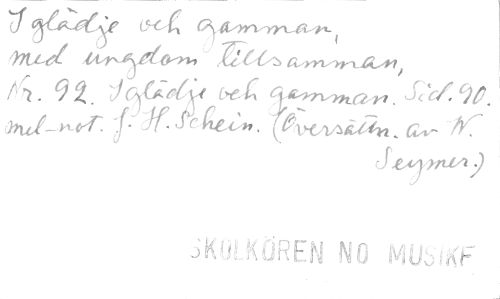 I glädje och gamman,
med ungdom tillsamman,
Nr. 92. I glädje och gamman. Sid. 90.
mel-not. J. H. Schein. (Översättn. av W.
Seymer.)
SKOLKÖREN NO MUSIKF